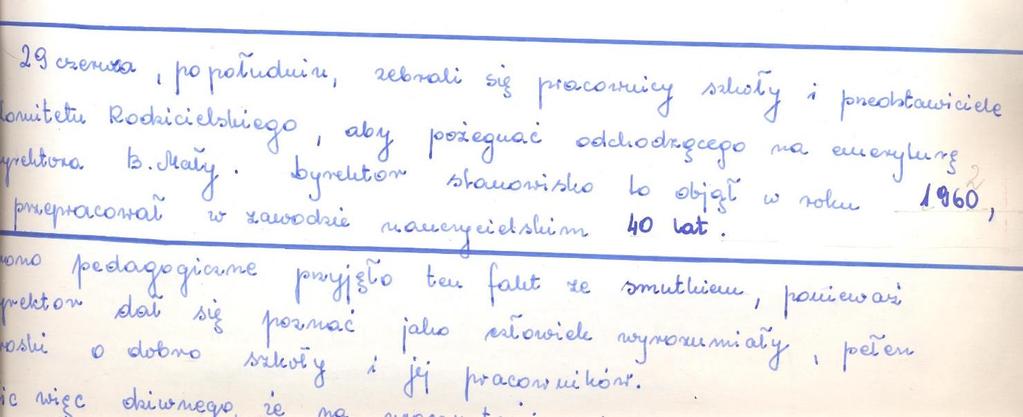 29 czerwca, po południu, zebrali się pracownicy szkoły i przedstawiciele
omitetu Rodzicielskiego, aby pożegnać odchodzącego na emeryturę
yrektora B. Mały. Dyrektor stanowisko to objął w roku 1960, 2
przepracował w zawodzie nauczycielskim 40 lat.
rono pedagogiczne przyjęło ten fakt ze smutkiem, ponieważ
yrektor dał się poznać jako człowiek wyrozumiały, pełen
roski o dobro szkoły i jej pracowników.
ic więc dziwnego, że na